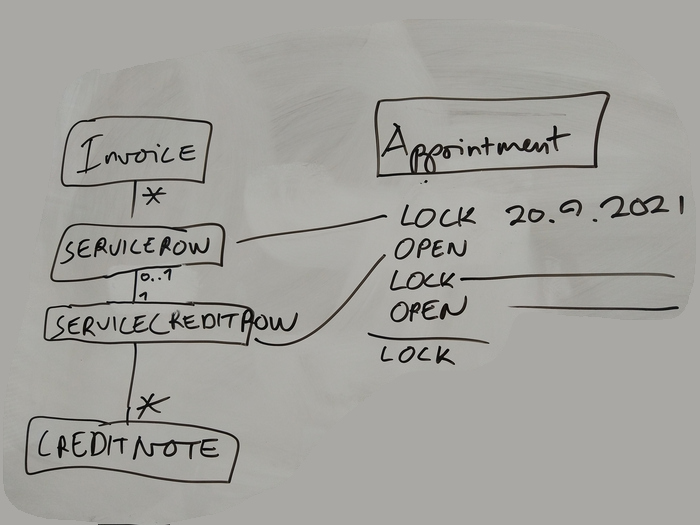 Invoice
*
SERVICEROW
0..1
1
SERVICECREDITROW
*
CREDITNOTE
Appointment
LOCK 20.9.2021
OPEN
LOCK
OPEN
LOCK